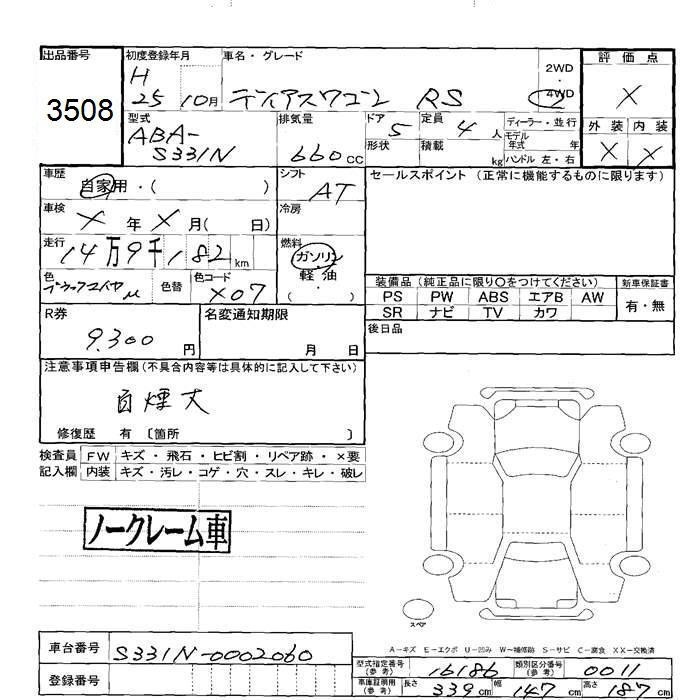 出品番号
3508
初度登録年月
H
25 10月
車名・グレード
ディアスワゴン RS
2WD
・
4WD
評価点
X
外装 内装
X X
型式
ABA-
S331N
排気量
660 CC
ドア
5
定員
4 人
形状
積載
kg
ディーラー・並行
モデル
年式 年
ハンドル 左・右
車歴
自家用・( )
シフト
AT
セールスポイント (正常に機能するものに限ります)
車検
X 年 X 月( 日)
冷房
走行
14万9千182 km
燃料
ガソリン
軽油
( ・ )
色
色替
色コード
X07
装備品 (純正品に限り○をつけてください)
PS PW ABS エアB AW
SR ナビ TV カワ
新車保証書
有・無
R券
9.300 円
名変通知期限
月 日
後日品
注意事項申告欄(不具合内容等は具体的に記入して下さい)
白煙大
修復歴 有 〔箇所 〕
検査員
記入欄
FW キズ・飛石・ヒビ割・リペア跡・×要
内装 キズ・汚レ・コゲ・穴・スレ・キレ・破レ
ノークレーム車
スペア
A-キズ E-エクボ U-凹み W-補修跡 S-サビ C-腐食 XX-交換済
車台番号
S331N-0002060
登録番号
型式指定番号
(参考)
16186
類別区分番号
(参考)
0011
車庫証明用
(参考)
長さ 339 cm 幅 147 cm 高さ 187 cm